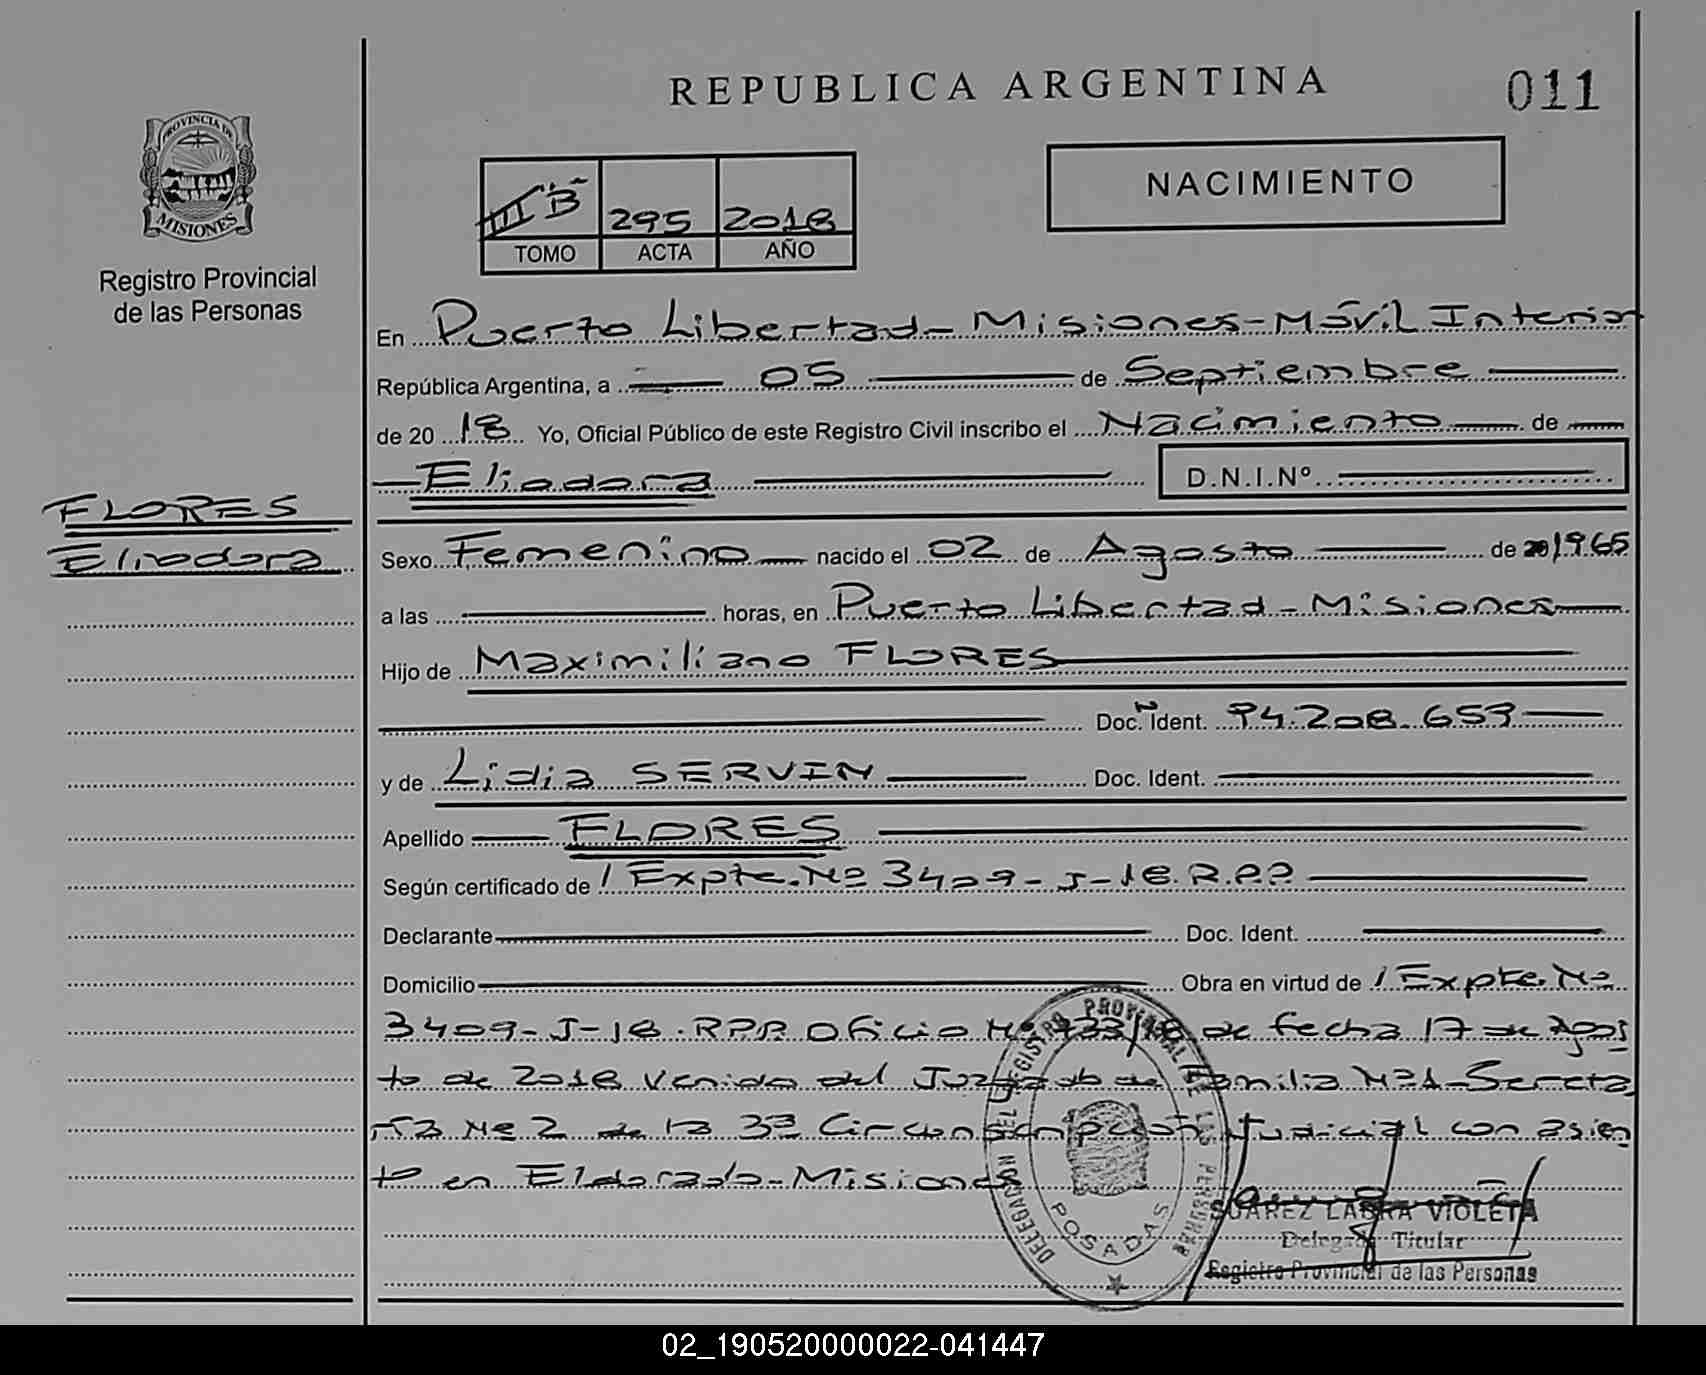 REPUBLICA ARGENTINA
011
PROVINCIA DE
MISIONES
Registro Provincial
de las Personas
III "B" 295 2018
TOMO ACTA AÑO
NACIMIENTO
En Puerto Libertad - Misiones - Móvil Interior
República Argentina, a 05 de Septiembre
de 20 18 Yo, Oficial Público de este Registro Civil inscribo el Nacimiento de
Eliodora D.N.I.Nº
FLORES
Eliodora
Sexo Femenino nacido el 02 de Agosto de 1965
a las horas, en Puerto Libertad - Misiones
Hijo de Maximiliano FLORES
Doc. Ident. 94.208.659
y de Lidia SERVIN Doc. Ident.
Apellido FLORES
Según certificado de / Expte. Nº 3409-J-18.R.P.P
Declarante Doc. Ident.
Domicilio Obra en virtud de / Expte. Nº
3409-J-18.R.P.P. Oficio Nº de fecha 17 de Agos
to de 2018 venido del Juzgado de Familia Nº1-Secreta
ría Nº 2 de la 3ª Circunscripción Judicial con asien
to en Eldorado - Misiones
DELEGACION DEL REGISTRO PROVINCIAL DE LAS PERSONAS
POSADAS
SUAREZ LAURA VIOLETA
Delegada Titular
Registro Provincial de las Personas
02_190520000022-041447